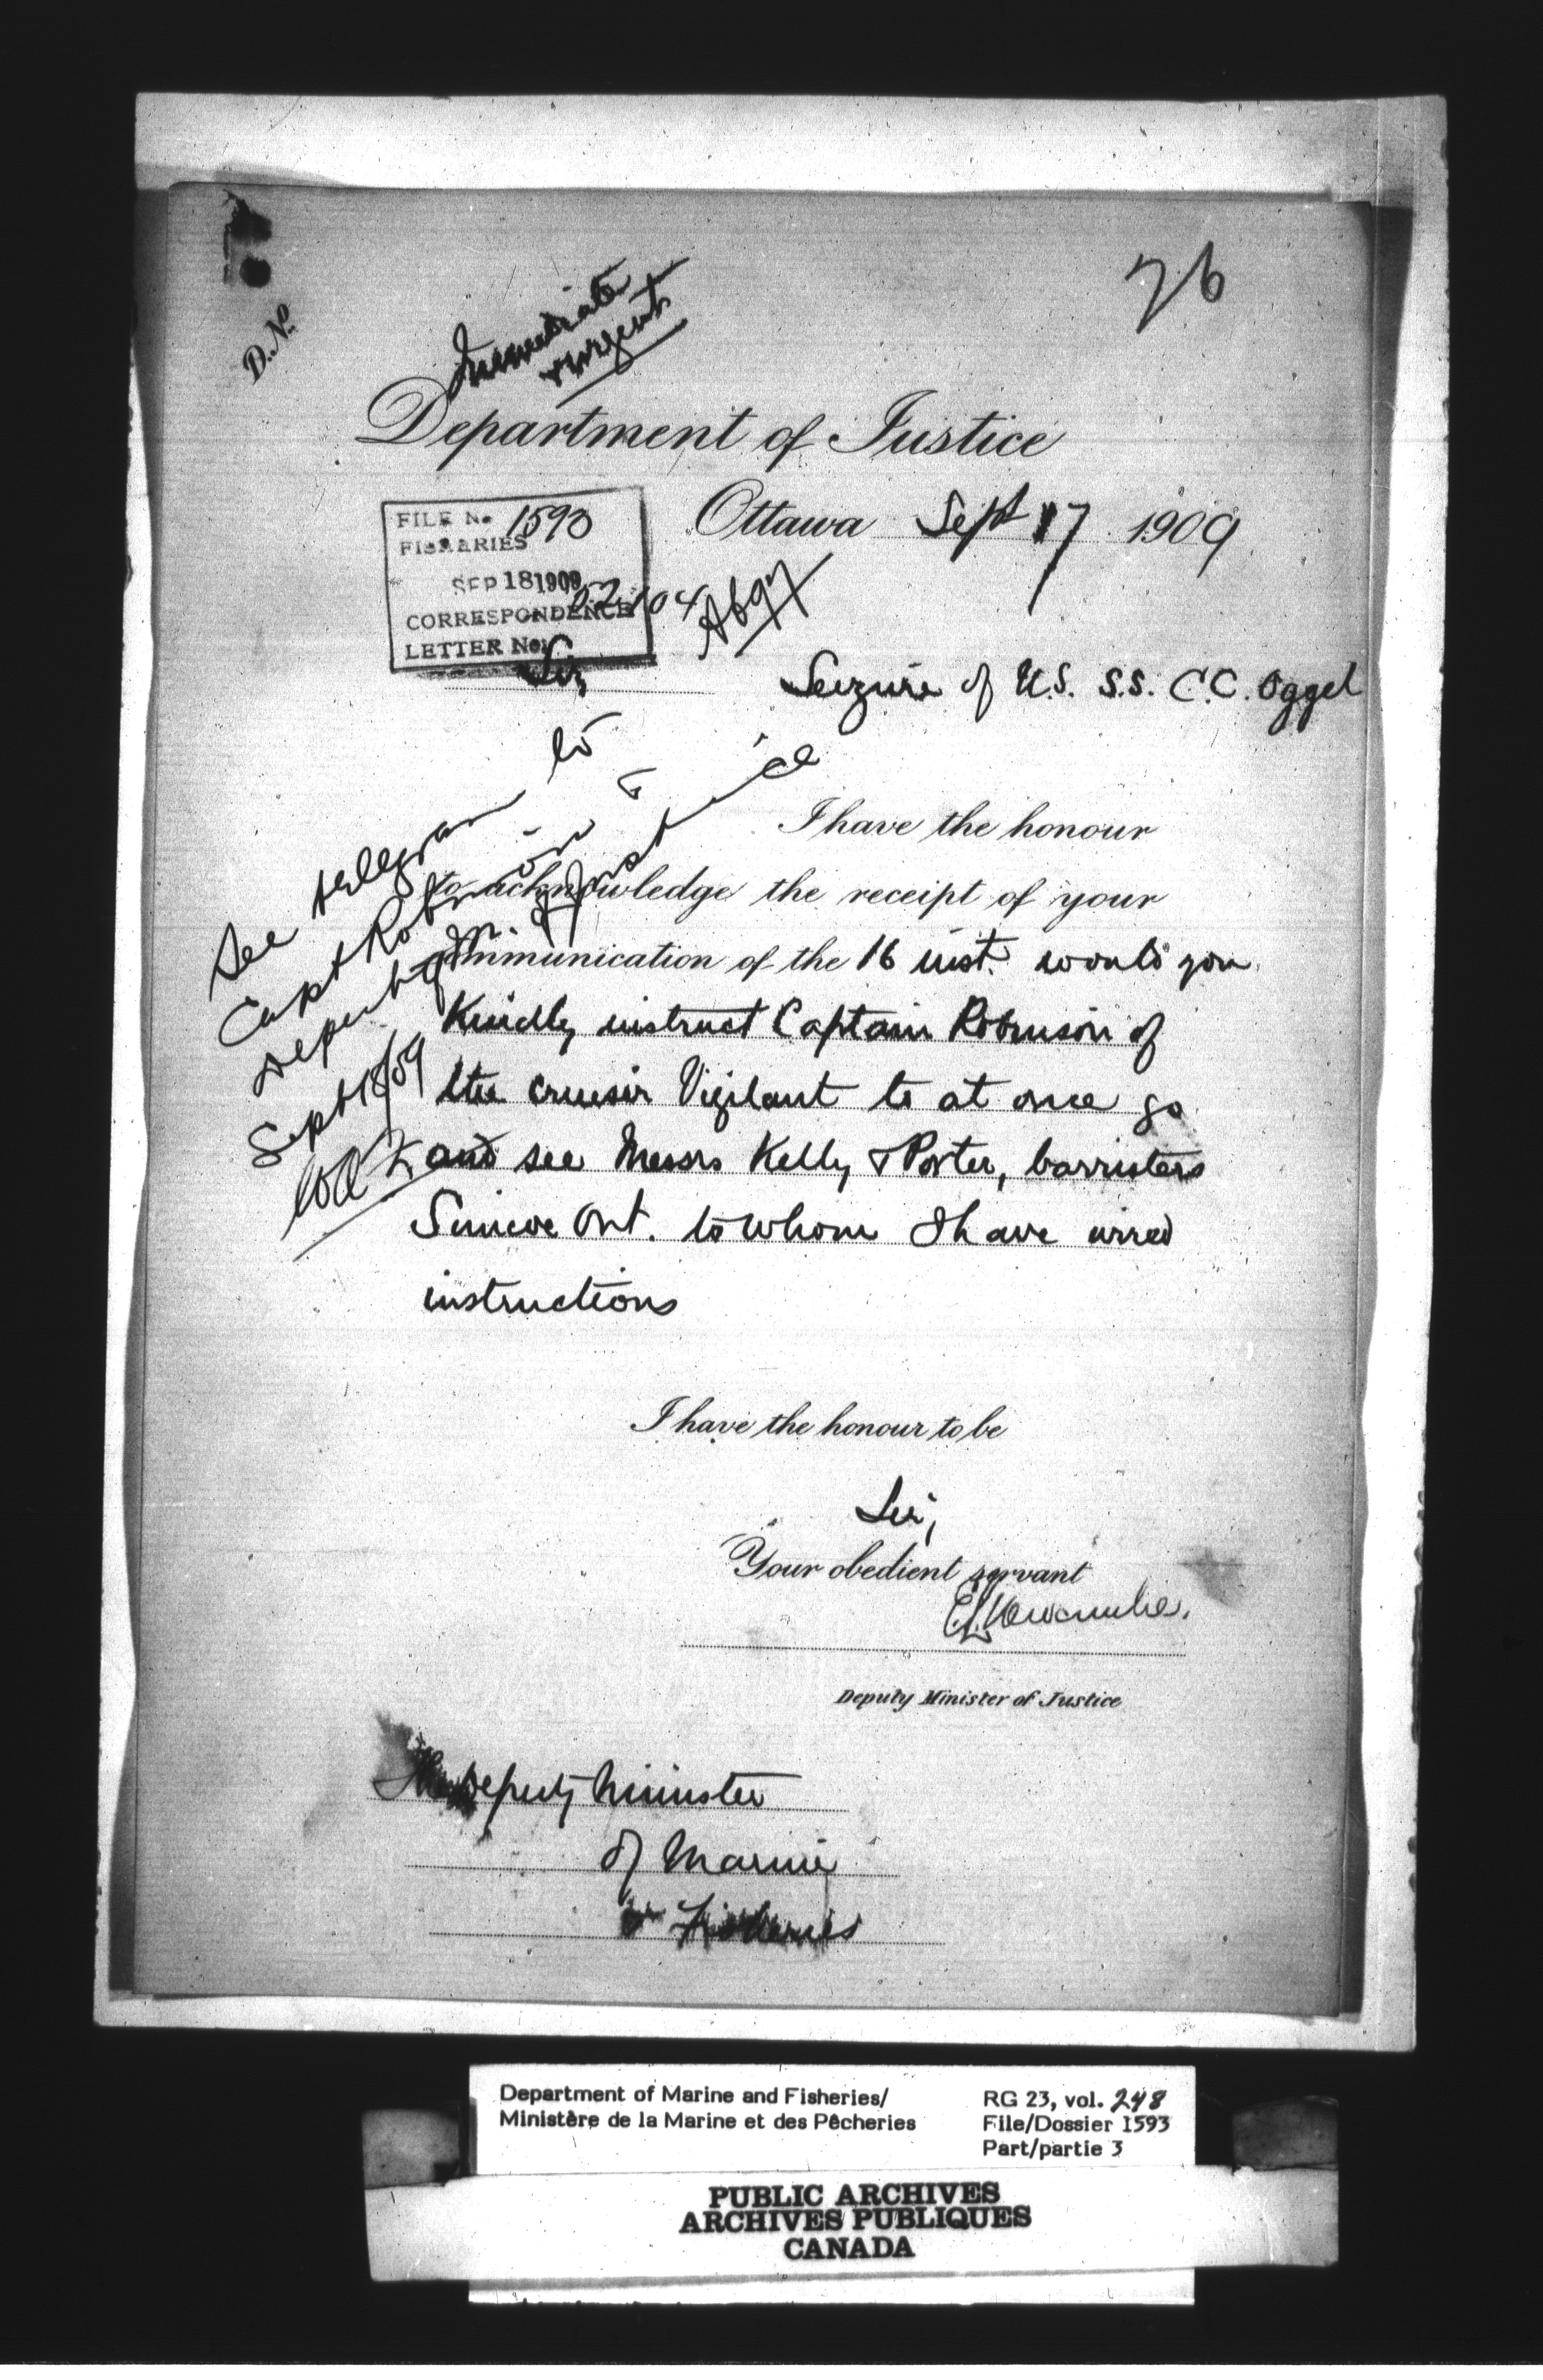 76
D. No
Immediate
& urgent
Department of Justice
Ottawa Sept 17 1909
FILE No 1593
FISHERIES
SEP 18 1909
52104
CORRESPONDENCE
LETTER No.
Sir,
Seizure of U.S. S.S. C.C. Oggel
See telegram to
Capt Robinson &
Deputy M. of Justice
Sept 18/09
I have the honour
to acknowledge the receipt of your
communication of the 16 inst. would you
Kindly instruct Captain Robinson of
the cruiser Vigilant to at once go
and see Messrs Kelly & Porter, barristers
Simcoe Ont. to whom I have wired
instructions
I have the honour to be
Sir,
Your obedient servant
E.L. Newcombe.
Deputy Minister of Justice
The Deputy Minister
of Marine
& Fisheries
Department of Marine and Fisheries/
Ministère de la Marine et des Pêcheries
RG 23, vol. 248
File/Dossier 1593
Part/partie 3
PUBLIC ARCHIVES
ARCHIVES PUBLIQUES
CANADA